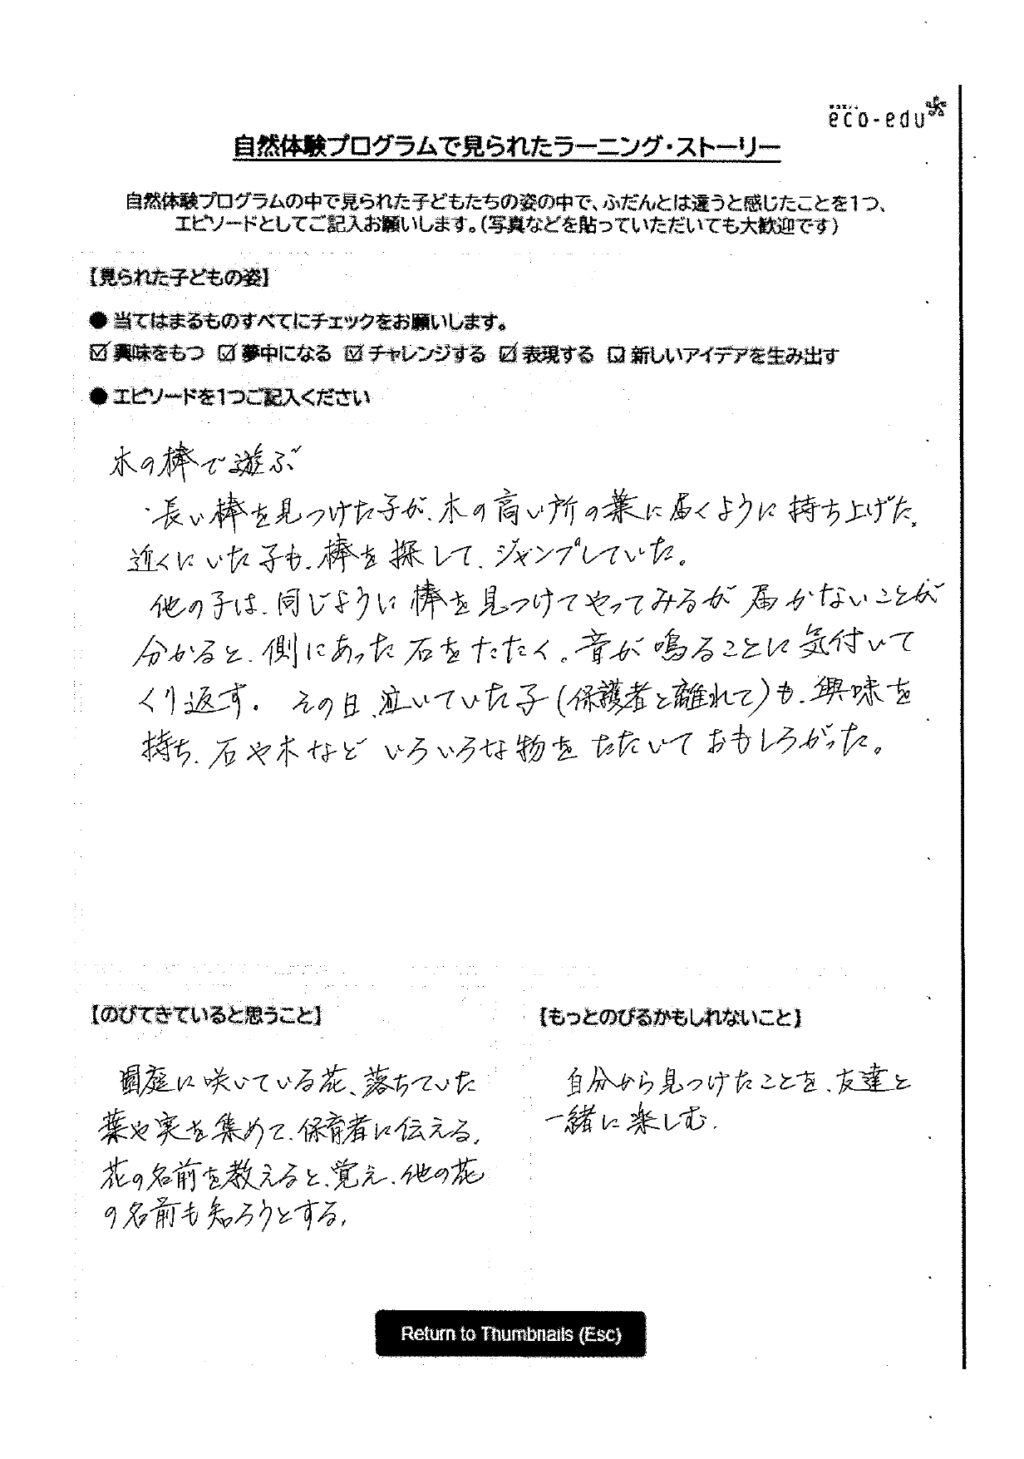 eco-edu
自然体験プログラムで見られたラーニング・ストーリー
自然体験プログラムの中で見られた子どもたちの姿の中で、ふだんとは違うと感じたことを1つ、
エピソードとしてご記入お願いします。(写真などを貼っていただいても大歓迎です)
【見られた子どもの姿】
● 当てはまるものすべてにチェックをお願いします。
☑ 興味をもつ ☑ 夢中になる ☑ チャレンジする ☑ 表現する ☐ 新しいアイデアを生み出す
● エピソードを1つご記入ください
木の棒で遊ぶ
・長い棒を見つけた子が、木の高い所の葉に届くように持ち上げた。
近くにいた子も、棒を探して、ジャンプしていた。
他の子は、同じように棒を見つけてやってみるが届かないことが
分かると、側にあった石をたたく。音が鳴ることに気付いて
くり返す。その日、泣いていた子(保護者と離れて)も、興味を
持ち、石や木などいろいろな物をたたいておもしろがった。
【のびてきていると思うこと】
園庭に咲いている花、落ちていた
葉や実を集めて、保育者に伝える。
花の名前を教えると、覚え、他の花
の名前も知ろうとする。
【もっとのびるかもしれないこと】
自分から見つけたことを、友達と
一緒に楽しむ。
Return to Thumbnails (Esc)